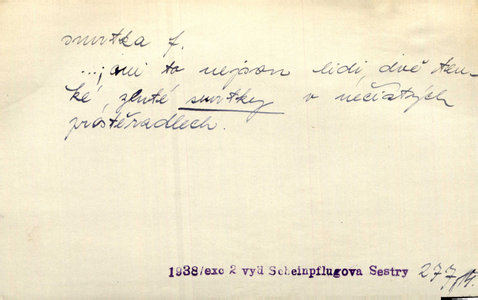 smrtka f.
...; ani to nejsou lidi, dvě ten-
ké, žluté smrtky v nečistých
prostěradlech.
1938/exc 2 vyd Scheinpflugova Sestry 277